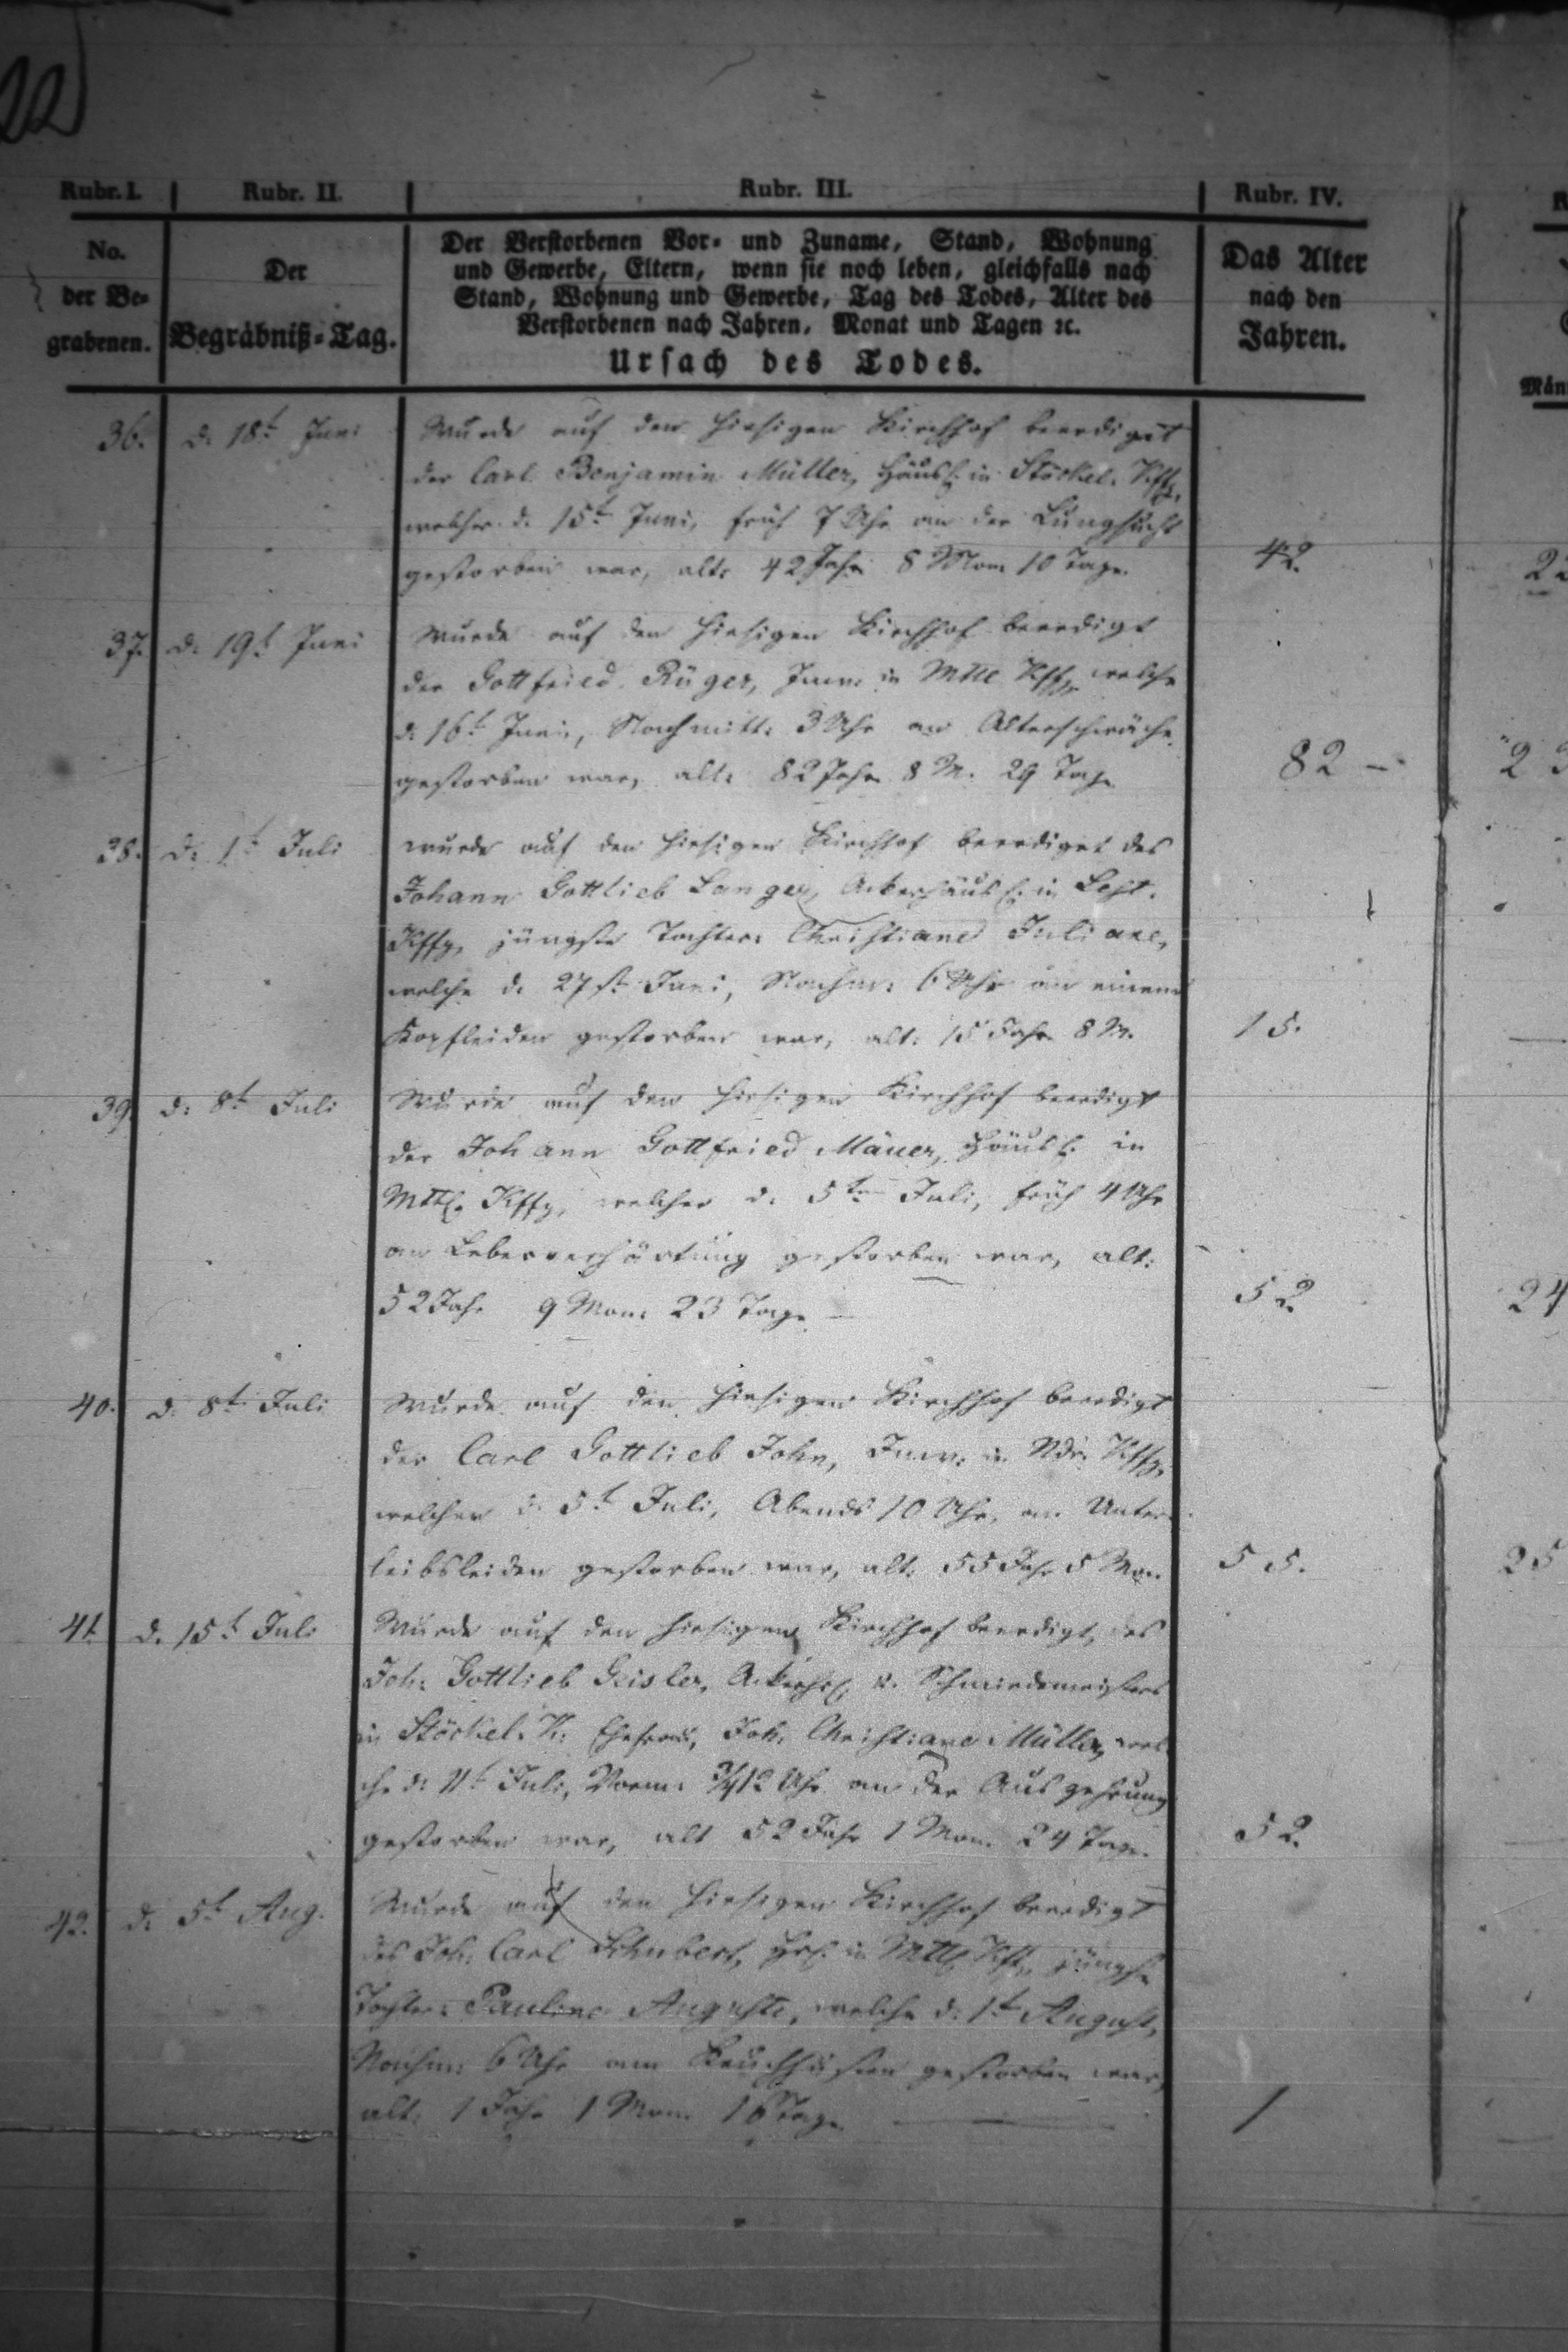 22
Rubr. I. Rubr. II. Rubr. III. Rubr. IV.
No. der Be- grabenen.
Der Begräbniß-Tag.
Der Verstorbenen Vor- und Zuname, Stand, Wohnung
und Gewerbe, Eltern, wenn sie noch leben, gleichfalls nach
Stand, Wohnung und Gewerbe, Tag des Todes, Alter des
Verstorbenen nach Jahren, Monat und Tagen ꝛc.
Ursach des Todes.
Das Alter
nach den
Jahren.
Män
36. d. 18t Juni Wurde auf den hiesigen Kirchhof beerdiget
der Carl Benjamin Müller, Häusl. in Stöckel. Kffg,
welcher d. 15t Juni, früh 7 Uhr an der Lungsucht
gestorben war, alt: 42 Jahr 8 Mon 10 Tage. 42.
37. d. 19t Juni Wurde auf den hiesigen Kirchhof beerdigt
der Gottfried Rüger, Inw. in Mttl Kffg, welcher
d. 16t Juni, Nachmitt. 3 Uhr an Altersschwäche
gestorben war, alt: 82 Jahr 8 M. 29 Tage 82 –
38. d. 1t Juli wurde auf den hiesigen Kirchhof beerdiget des
Johann Gottlieb Langer, Ackerhäusl. in
Kffg, jüngste Tochter: Christiane Juliane,
welche d. 27st Juni, Nachm: 6 Uhr an einem
Kopfleiden gestorben war, alt: 15 Jahr 8 M. 15.
39. d. 8t Juli Wurde auf den hiesigen Kirchhof beerdigt
der Johann Gottfried Mäuer, Häusl. in
Mttl. Kffg, welcher d. 5ten Juli, früh 4 Uhr
an Leberverhärtung gestorben war, alt:
52 Jahr 9 Mon: 23 Tage 52. 24
40. d. 8t Juli Wurde auf den hiesigen Kirchhof beerdigt
der Carl Gottlieb John, Inw: in Ndr. Kffg,
welcher d. 5t Juli, Abends 10 Uhr, an Unter-
leibsleiden gestorben war, alt: 55 Jahr 5 Mon. 55. 25
41. d. 15t Juli Wurde auf den hiesigen Kirchhof beerdigt, des
Joh: Gottlieb Geisler, Ackerhsl. u. Schmiedemeisters
in Stöckel. K: Ehefrau, Joh: Christiane Müller, wel-
che d. 11t Juli, Vorm: 3/4 12 Uhr an der Auszehrung
gestorben war, alt 52 Jahr 1 Mon. 24 Tage. 52.
42. d. 5t Aug. Wurde auf den hiesigen Kirchhof beerdigt
des Joh: Carl Schubert, Hsl. in Mttl Kff, jüngste
Tochter: Pauline Auguste, welche d. 1t August,
Nachm: 6 Uhr am Keuchhusten gestorben war,
alt: 1 Jahr 1 Mon: 16 Tage 1